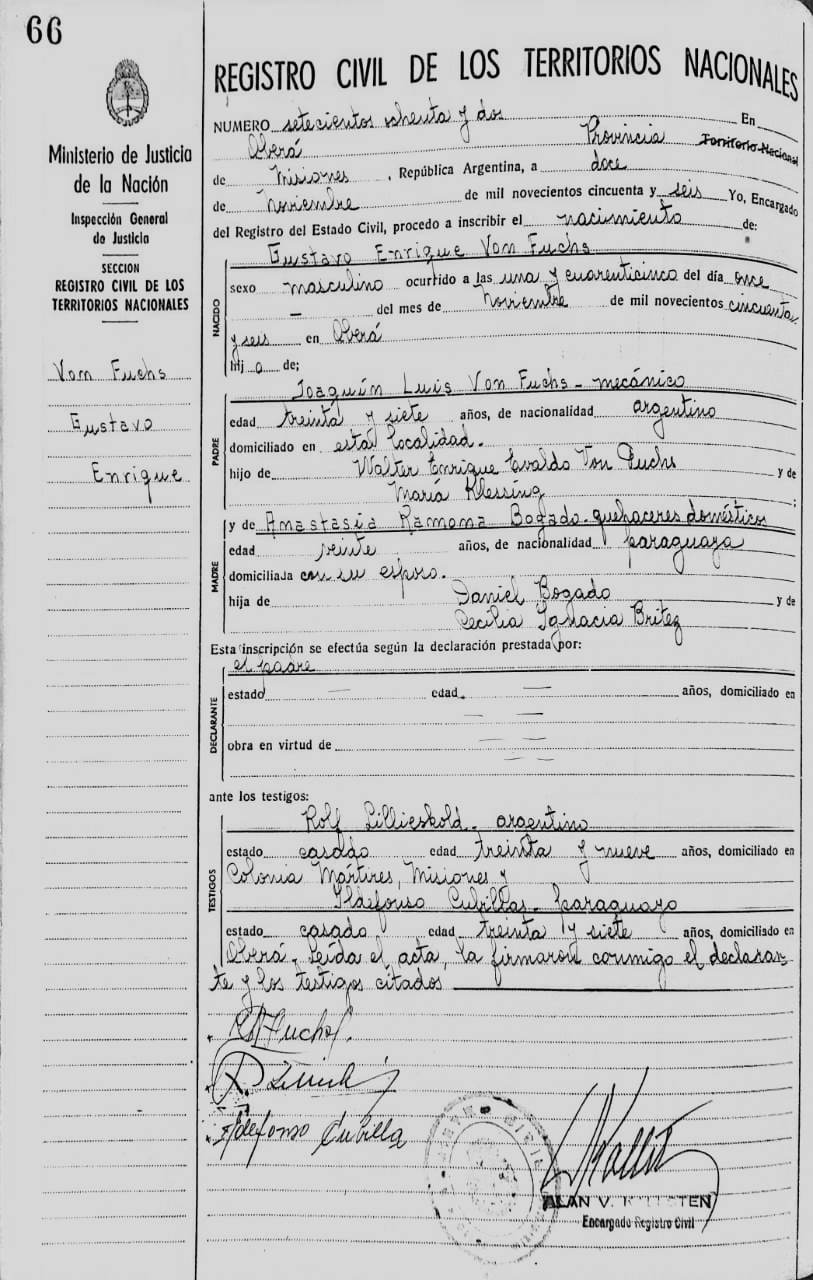 66
Ministerio de Justicia
de la Nación
Inspección General
de Justicia
SECCION
REGISTRO CIVIL DE LOS
TERRITORIOS NACIONALES
Von Fuchs
Gustavo
Enrique
REGISTRO CIVIL DE LOS TERRITORIOS NACIONALES
NUMERO setecientos ochenta y dos En
Oberá Provincia Territorio Nacional
de Misiones, República Argentina, a doce
de Noviembre de mil novecientos cincuenta y seis Yo, Encargado
del Registro del Estado Civil, procedo a inscribir el nacimiento de:
NACIDO
Gustavo Enrique Von Fuchs
sexo masculino ocurrido a las una y cuarenticinco del día once
— del mes de Noviembre de mil novecientos cincuenta
y seis en Oberá
hij o de;
PADRE
Joaquín Luis Von Fuchs - mecánico
edad treinta y siete años, de nacionalidad argentino
domiciliado en esta localidad.
hijo de Walter Enrique Evaldo Von Fuchs y de
María Klessing ;
MADRE
y de Anastasia Ramona Bogado - quehaceres domésticos
edad veinte años, de nacionalidad paraguaya
domiciliada con su esposo.
hija de Daniel Bogado y de
Cecilia Ignacia Britez
Esta inscripción se efectúa según la declaración prestada por:
DECLARANTE
el padre
estado — edad — años, domiciliado en
— —
obra en virtud de — —
— —
ante los testigos:
TESTIGOS
Rolf Lillieskold - argentino
estado casado edad treinta y nueve años, domiciliado en
Colonia Mártires, Misiones y
Ildefonso Cubillas - paraguayo
estado casado edad treinta y siete años, domiciliado en
Oberá. Leída el acta, la firmaron conmigo el declaran-
te y los testigos citados
Ildefonso Cubilla
ALAN V.
Encargado Registro Civil